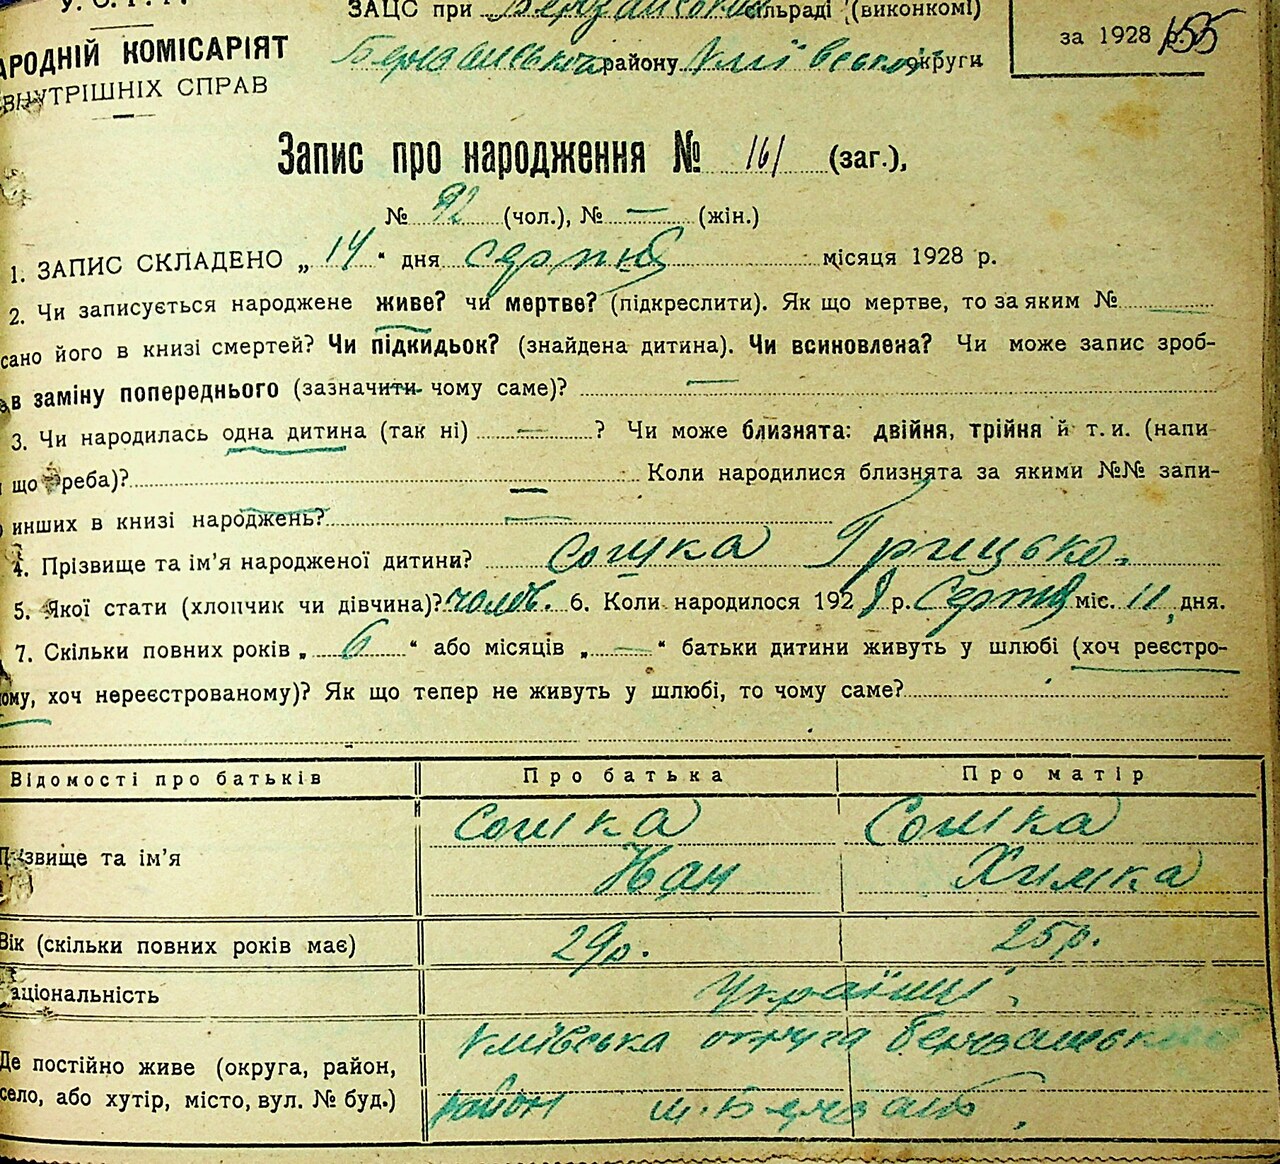 У. С. Р. Р.
ЗАЦС при Березанській сільраді (виконкомі)
за 1928 р. 155
АРОДНІЙ КОМІСАРІЯТ
Березанського району Київської округи
ВНУТРІШНІХ СПРАВ
Запис про народження № 161 (заг.),
№ 92 (чол.), № — (жін.)
1. ЗАПИС СКЛАДЕНО „ 14 “ дня серпня місяця 1928 р.
2. Чи записується народжене живе? чи мертве? (підкреслити). Як що мертве, то за яким № —
сано його в книзі смертей? Чи підкидьок? (знайдена дитина). Чи всиновлена? Чи може запис зроб-
в заміну попереднього (зазначити чому саме)? —
3. Чи народилась одна дитина (так ні) — ? Чи може близнята: двійня, трійня й т. и. (напи
що треба)? — Коли народилися близнята за якими №№ запи-
инших в книзі народжень? —
4. Прізвище та ім'я народженої дитини? Сошка Грицько.
5. Якої стати (хлопчик чи дівчина)? чолов. 6. Коли народилося 1928 р. Серпня міс. 11 дня.
7. Скільки повних років „ 6 “ або місяців „ — “ батьки дитини живуть у шлюбі (хоч реєстро-
ому, хоч нереєстрованому)? Як що тепер не живуть у шлюбі, то чому саме?
Відомості про батьків Про батька Про матір
Сошка Сошка
Прізвище та ім'я
Іван Химка
Вік (скільки повних років має) 29 р. 25 р.
аціональність Україці.
Київська округа Березанського
Де постійно живе (округа, район,
село, або хутір, місто, вул. № буд.) район м. Березань.